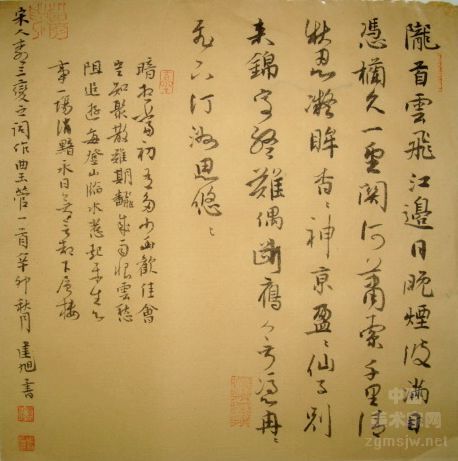 隴首雲飛江邊日晚煙波滿目
憑欄久一望關河蕭索千里清
秋忍凝眸杳々神京盈々仙子別
來錦字終難偶斷雁無憑冉々
飛下汀洲思悠々
暗想當初有多少幽歡佳會
豈知聚散難期翻成雨恨雲愁
阻追遊每登山臨水惹起平生心
事一場消黯永日無言卻下層樓
宋人柳三變之詞作曲玉管一首辛卯秋月 旭書
美术家网
zgmsjw.net